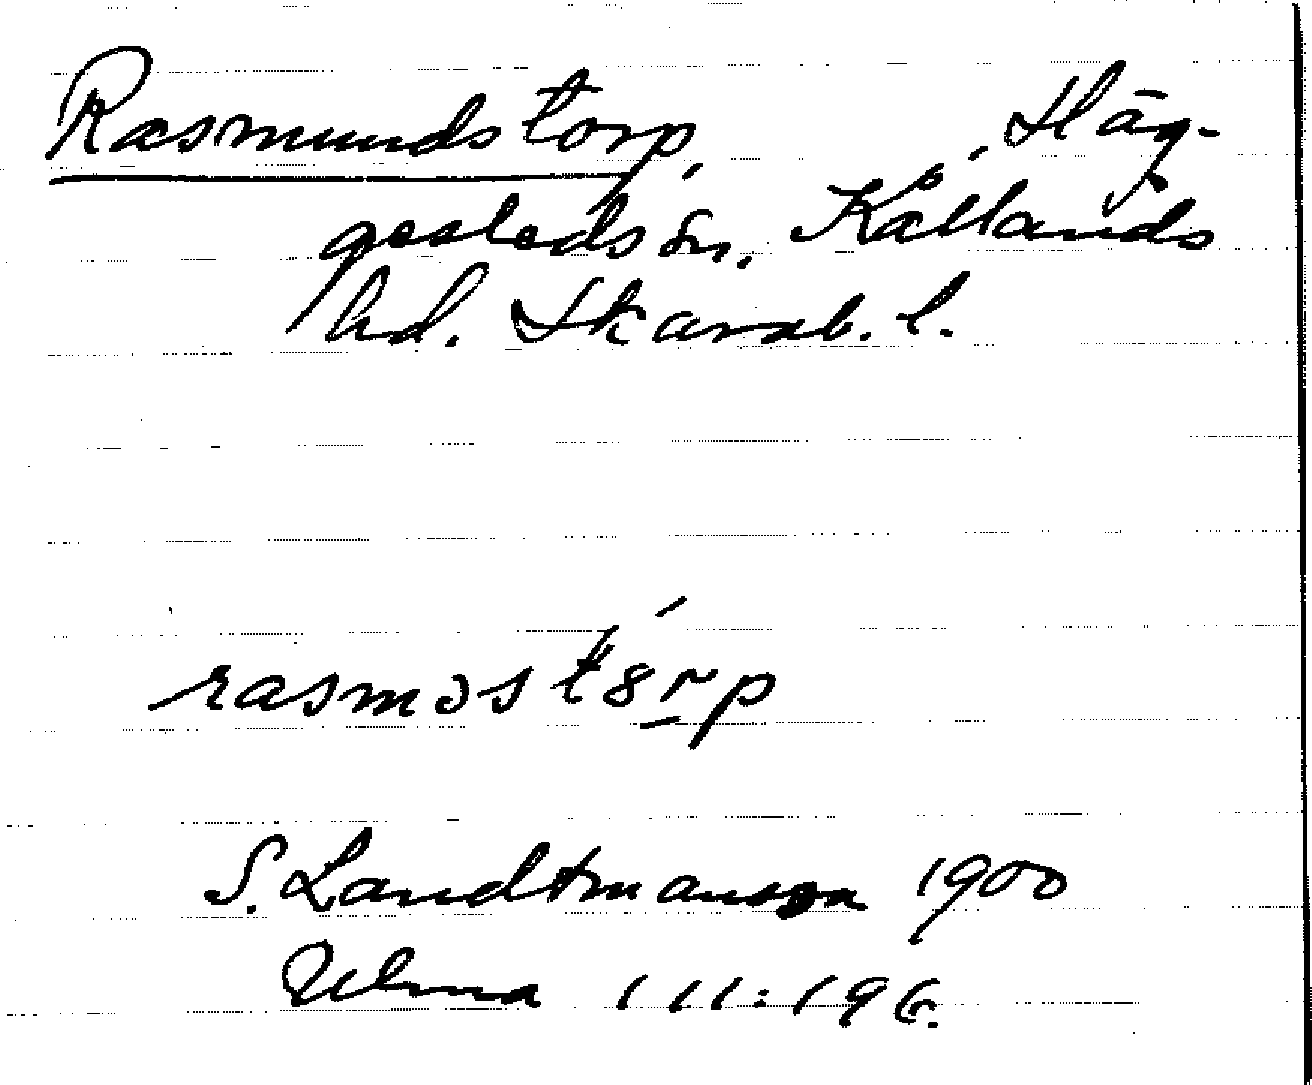 Rasmundstorp, Häg-
gesleds sn, Kållands
hd. Skarab. l.
rasməstȣrp
S. Landtmanson 1900
Ulma 111:196.